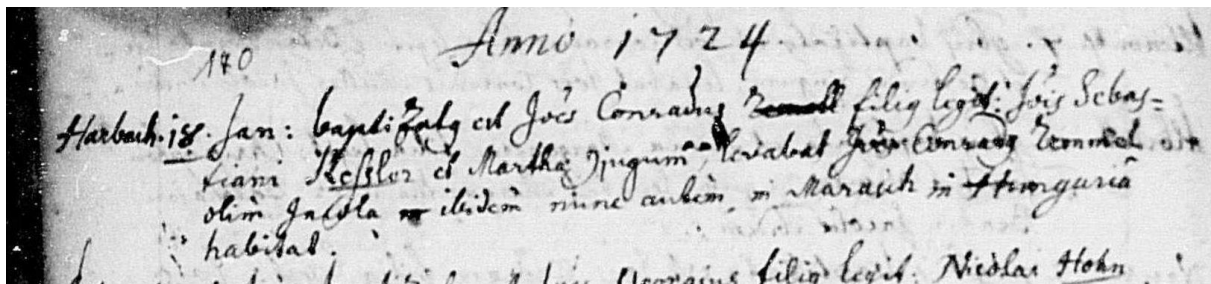 Anno 1724
180
Harbach. 18. Jan: baptizatg est Joes Conradus filig legit: Jois Sebas=
tiani Kessler et Martha Conjugum, levabat Conradg Zemmel
olim Incola ibidem nunc autem in Marasch in Hungaria
habitat.
Georgius filig legit: Nicolai Hohn